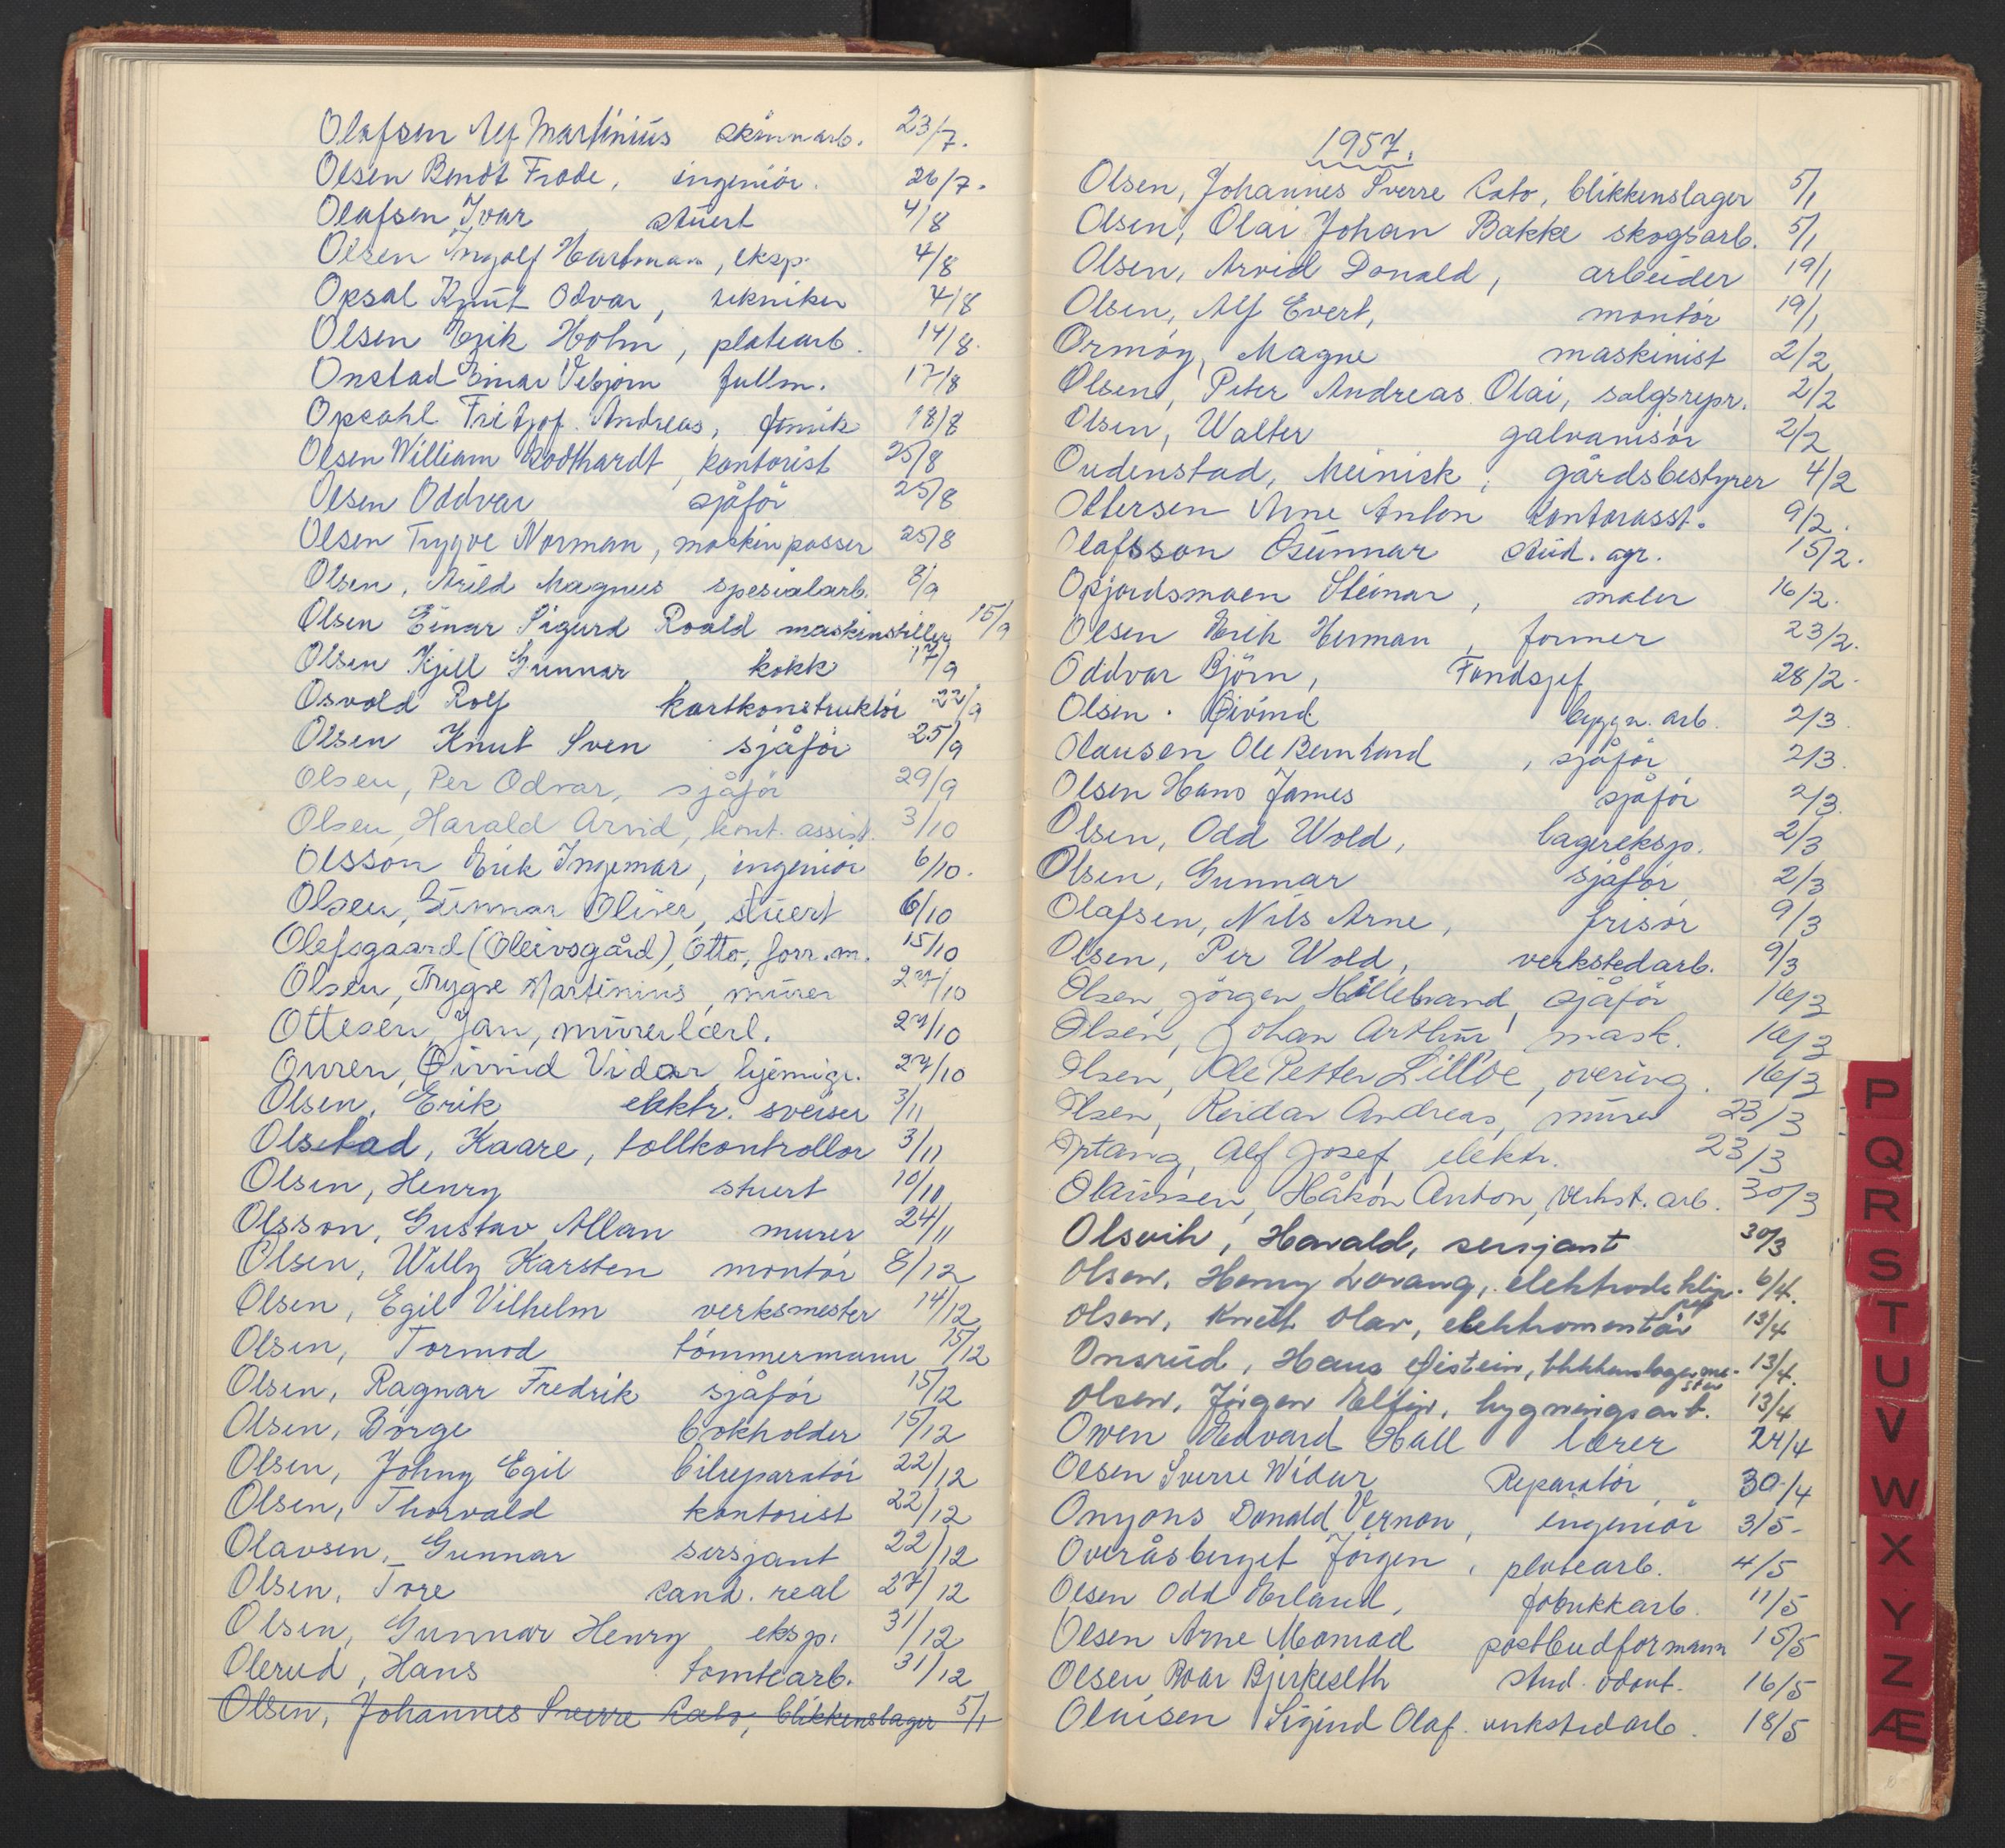 Olafsen Alf Martinius skinnarb. 23/7.
Olsen Bendt Frode, ingeniør. 26/7.
Olafsen Ivar stuert 4/8
Olsen Ingolf Hartman, eksp. 4/8
Opsal Knut Odvar, tekniker 7/8
Olsen Erik Holm, platearb. 14/8.
Onstad Einar Vebjørn fullm. 17/8
Opsahl Fritjof Andreas, 18/8
Olsen William Godthardt, kontorist 25/8
Olsen Oddvar sjåfør 25/8
Olsen Trygve Norman, maskinpasser 25/8
Olsen, Arild Magnus spesialarb. 8/9
Olsen Einar Sigurd Roald maskinstiller 15/9
Olsen Kjell Gunnar kokk 17/9
Osvold Rolf kartkonstruktør 22/9
Olsen Knut Sven sjåfør 25/9
Olsen, Per Odvar, sjåför 29/9
Olsen, Harald Arvid, kont. assist. 3/10
Olsson Erik Ingemar, ingeniør 6/10.
Olsen, Gunnar Oliver, stuert 6/10
Olefsgaard (Oleivsgård), Otto, forr.m. 15/10
Olsen, Trygve Martinius, murer 27/10
Ottesen, Jan, murerlærl. 27/10
Ouren, Øivind Vidar, kjemigr. 27/10
Olsen, Erik elektr. sveiser 3/11
Olstad, Kaare, tollkontrollør 3/11
Olsen, Henry stuert 10/11
Olsson, Gustav Allan murer 24/11
Olsen, Willy Karsten montør 8/12
Olsen, Egil Vilhelm verksmester 14/12
Olsen, Tormod tømmermann 15/12
Olsen, Ragnar Fredrik sjåfør 15/12
Olsen, Børge bokholder 15/12
Olsen, Johny Egil bilreparatør 22/12
Olsen, Thorvald kontorist 22/12
Olavsen, Gunnar sersjant 22/12
Olsen, Tore cand. real 27/12
Olsen, Gunnar Henry eksp. 31/12
Olerud, Hans tomtearb. 31/12
Olsen, Johannes Sverre Cato, blikkenslager 5/1
1957.
Olsen, Johannes Sverre Cato, blikkenslager 5/1
Olsen, Olai Johan Bakke skogsarb. 5/1
Olsen, Arvid Donald, arbeider 19/1
Olsen, Alf Evert, montør 19/1
Ormøy, Magne maskinist 2/2
Olsen, Peter Andreas Olai, salgsrepr. 2/2
Olsen, Walter galvanisør 2/2
Oudenstad, Meinick, gårdsbestyrer 4/2
Ottersen Arne Anton kontorasst. 9/2.
Olafsson Gunnar stud. agr. 15/2.
Opjordsmoen Steinar, maler 16/2.
Olsen Erik Herman, former 23/2.
Oddvar Bjørn, Fondsjef 28/2.
Olsen. Øivind byggn. arb. 2/3.
Olausen Ole Bernhard, sjåfør 2/3.
Olsen Hans James sjåfør 2/3.
Olsen, Odd Wold, lagereksp. 2/3
Olsen, Gunnar sjåfør 2/3
Olafsen, Nils Arne, frisør 9/3
Olsen, Per Wold, verkstedarb. 9/3
Olsen, Jörgen Hillebrand, sjåför 16/3
Olsen, Johan Arthur mask. 16/3
Olsen, Ole Petter Lilløe, overing. 16/3
Olsen, Reidar Andreas, murer 23/3
Optang, Alf Josef, elektr. 23/3
Olaussen, Håkon Anton, verkst. arb. 30/3
Olsvik, Harald, sersjant 30/3
Olsen, Henry Lorang, elektrode klip- 6/4.
per
Olsen, Knut Olav, elektromontör 13/4
Onsrud, Hans Øistein, blikkenslagerme- 13/4.
ster
Olsen, Jörgen Elfin, bygningsarb. 13/4
Owen Edvard Hall lærer 24/4
Olsen Sverre Widar Reparatør, 30/4
Onyons Donald Vernon, ingeniør 3/5-
Overåsberget Jørgen, platearb. 4/5
Olsen Odd Erland, fabrikkarb. 11/5
Olsen Arne Monrad postbudformann 15/5
Olsen, Roar Bjerkeseth stud. odont. 16/5
Olaisen Sigurd Olaf. verkstedarb. 18/5
P
Q
R
S
T
U
V
W
X
Y
Z
Æ